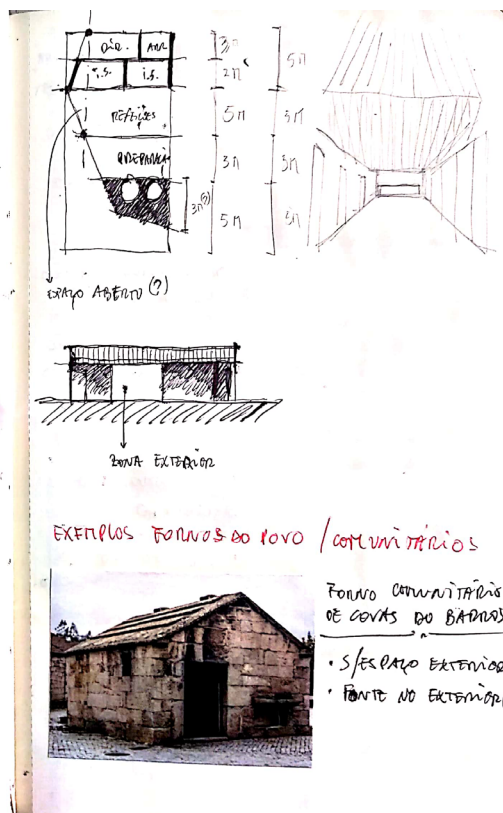 DIR. ARR.
I.S. I.S.
REFEIÇÕES
PREPARAÇÃO
3m
2m
5m
3m
5m
3m(?)
5m
3m
3m
3m
ESPAÇO ABERTO (?)
ZONA EXTERIOR
EXEMPLOS FORNOS DO POVO / COMUNITÁRIOS
FORNO COMUNITÁRIO
DE COVAS DO BARROSO
• S/ESPAÇO EXTERIOR
• FONTE NO EXTERIOR